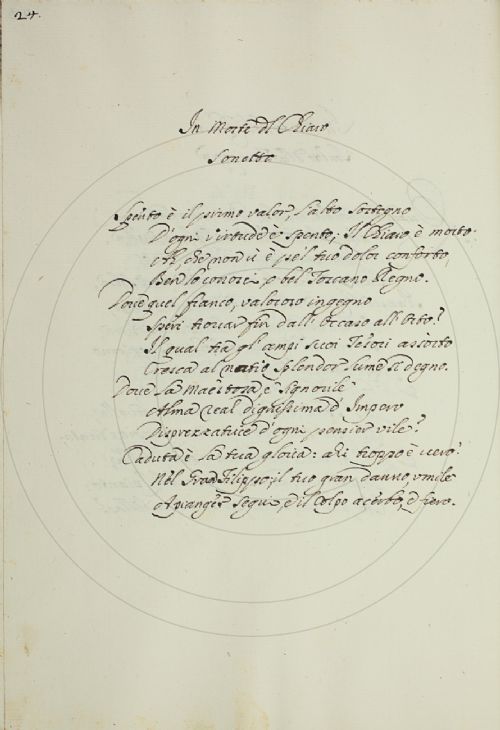 24.
In Morte del Chiaro
Sonetto
Spento è il primo valor, l'alto sostegno
D'ogni virtude è spento; Il Chiaro è morto.
Ah, che non v'è pel tuo dolor conforto,
Ben lo conosci, o bel Toscano Regno.
Dove quel franco, valoroso ingegno
Speri trovar fin dall'Occaso all'Orto?
Il qual tra gl'ampi suoi Tesori assorto
Cresca al natio splendor lume sì degno.
Dove la Maestosa, e Signorile
Alma real dignissima d'Impero
Disprezzatrice d'ogni pensier vile?
Caduta è la tua gloria: ah troppo è vero!
Nel Gran Filippo; il tuo gran danno, umile
A pianger segui, e il Colpo acerbo, e fiero.